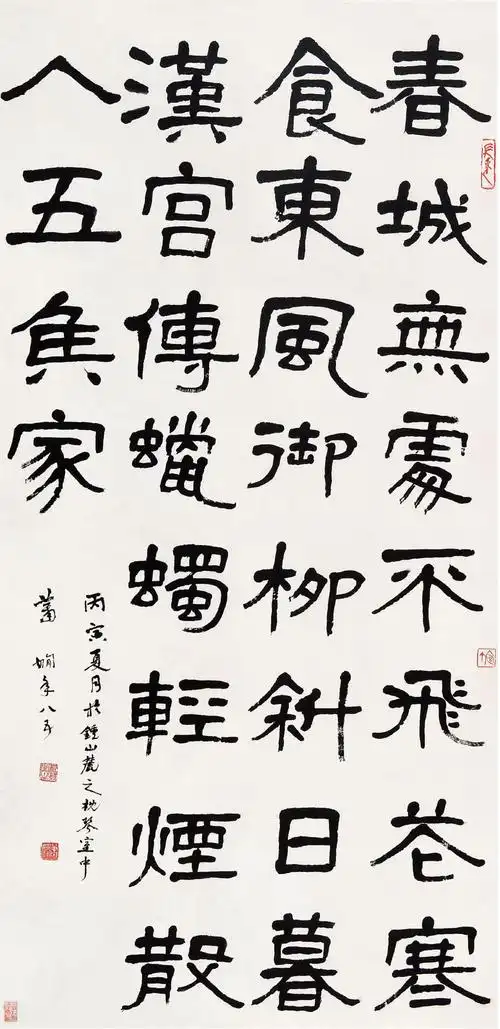 春城無處不飛花寒
食東風御柳斜日暮
漢宮傳蠟蠋輕煙散
入五矦家
丙寅夏月於鍾山麓之枕琴室中
蕭嫻年八五